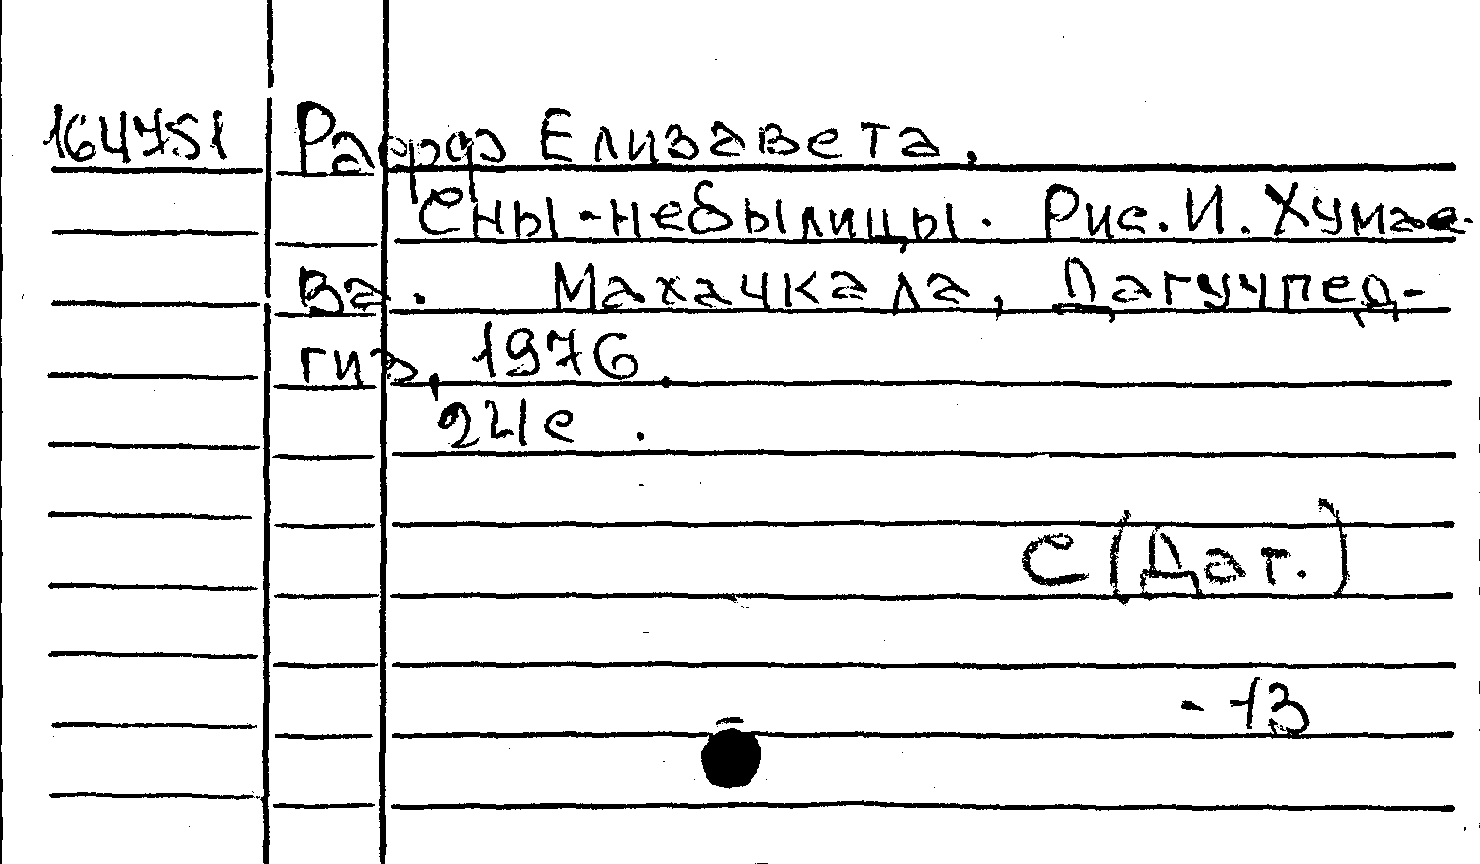 164751 Рафф Елизавета.
Сны-небылицы. Рис. И. Хумае-
ва. Махачкала, Дагучпед-
гиз, 1976.
24с.
С(Даг.)
-13